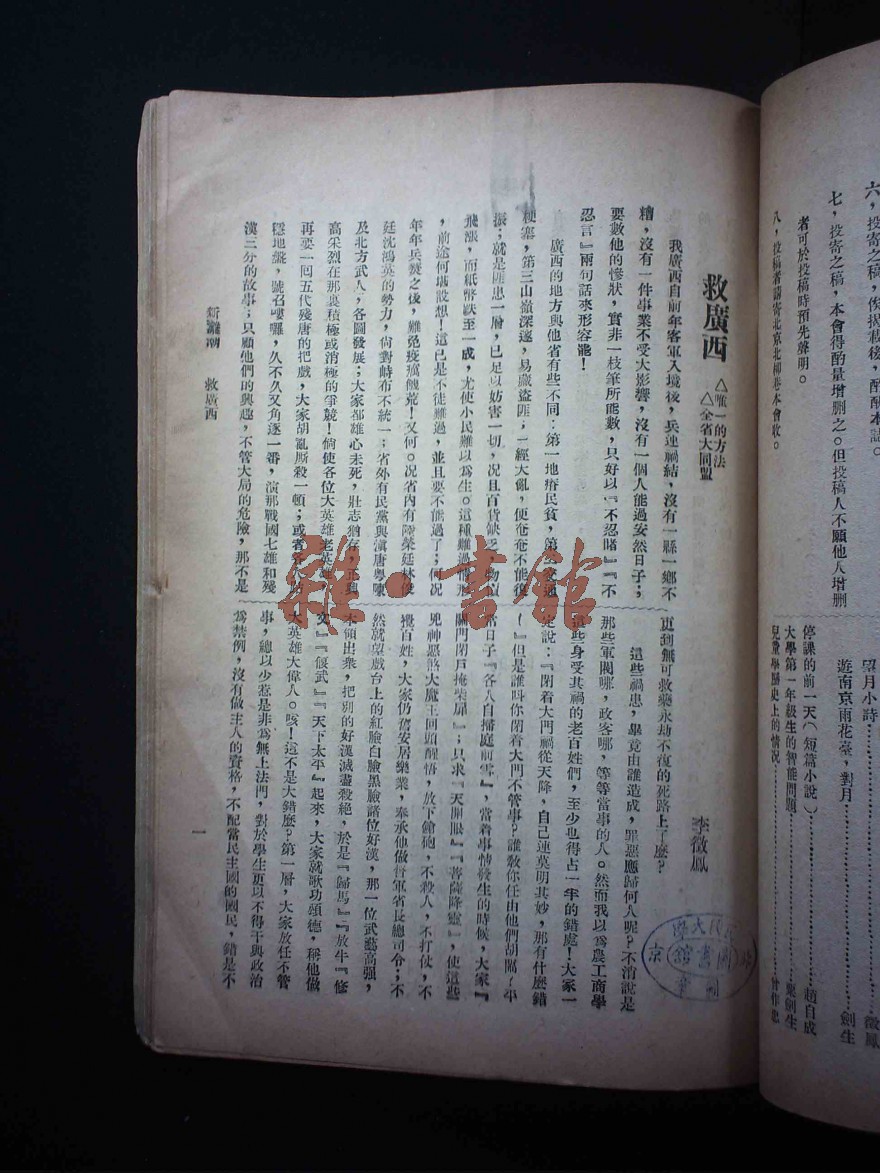 六，投寄之稿，俟揭載後，酌酬本誌。
七，投寄之稿，本會得酌量增刪之。但投稿人不願他人增刪
者可於投稿時預先聲明。
八，投稿者請寄北京北柳巷本會收。
望月小詩………微鳳
遊南京雨花臺，對月………劍生
停課的前一天（短篇小說）………趙自成
大學第一年級生的智能問題………劍生
兒童學歷史上的情況………作忠
救廣西
△唯一的方法
△全省大同盟
李微鳳
我廣西自前年客軍入境後，兵連禍結，沒有一縣一鄉不
糟，沒有一件事業不受大影響，沒有一個人能過安然日子；
要數他的慘狀，實非一枝筆所能數，只好以『不忍睹』『不
忍言』兩句話來形容罷！
廣西的地方與他省有些不同：第一地瘠民貧，第二交通
梗塞，第三山嶺深邃，易藏盜匪；一經大亂，便奄奄不能復
振；就是匪患一層，已足以妨害一切，況且百貨缺乏，物價
飛漲，而紙幣跌至一成，尤使小民難以爲生。這種難過情形
，前途何堪設想！這已是不徒難過，並且要不能過了；何況
年年兵燹之後，難免疫癘饑荒！又何況省內有陸榮廷林俊
廷沈鴻英的勢力，尙對峙布不統一；省外有民黨與滇唐粵陳
及北方武人，各圖發展；大家都雄心未死，壯志猶存，正興
高采烈在那裏積極或消極的爭競！倘使各位大英雄老英雄
再要一回五代殘唐的把戲，大家胡亂厮殺一頓；或者各人佔
穩地盤，號召嘍囉，久不久又角逐一番，演那戰國七雄和殘
漢三分的故事；只顧他們的興趣，不管大局的危險，那不是
更到無可救藥永劫不復的死路上了麽？
這些禍患，畢竟由誰造成，罪惡應歸何人呢？不消說是
那些軍閥哪，政客哪，等等當事的人。然而我以爲農工商學
這些身受其禍的老百姓們，至少也得占一半的錯處！大家一
定說：『閉着大門禍從天降，自己連莫明其妙，那有什麽錯
！』但是誰叫你閉着大門不管事？誰教你任由他們胡鬧？平
常日子『各人自掃庭前雪』，當着事情發生的時候，大家『
關門閉戶掩柴扉』；只求『天開眼』『菩薩降靈』，使這些
兇神惡煞大魔王回頭醒悟，放下鎗砲，不殺人，不打仗，不
擾百姓，大家仍舊安居樂業，奉承他做督軍省長總司令；不
然就望戲台上的紅臉白臉黑臉諸位好漢，那一位武藝高强，
本領出衆，把別的好漢滅盡殺絕，於是『歸馬』『放牛』『修
文』『偃武』『天下太平』起來，大家就歌功頌德，稱他做
大英雄大偉人。咳！這不是大錯麽？第一層，大家放任不管
事，總以少惹是非爲無上法門，對於學生更以不得干與政治
爲禁例，沒有做主人的資格，不配當民主國的國民，錯是不
救廣西
一
圖書館
雜書館